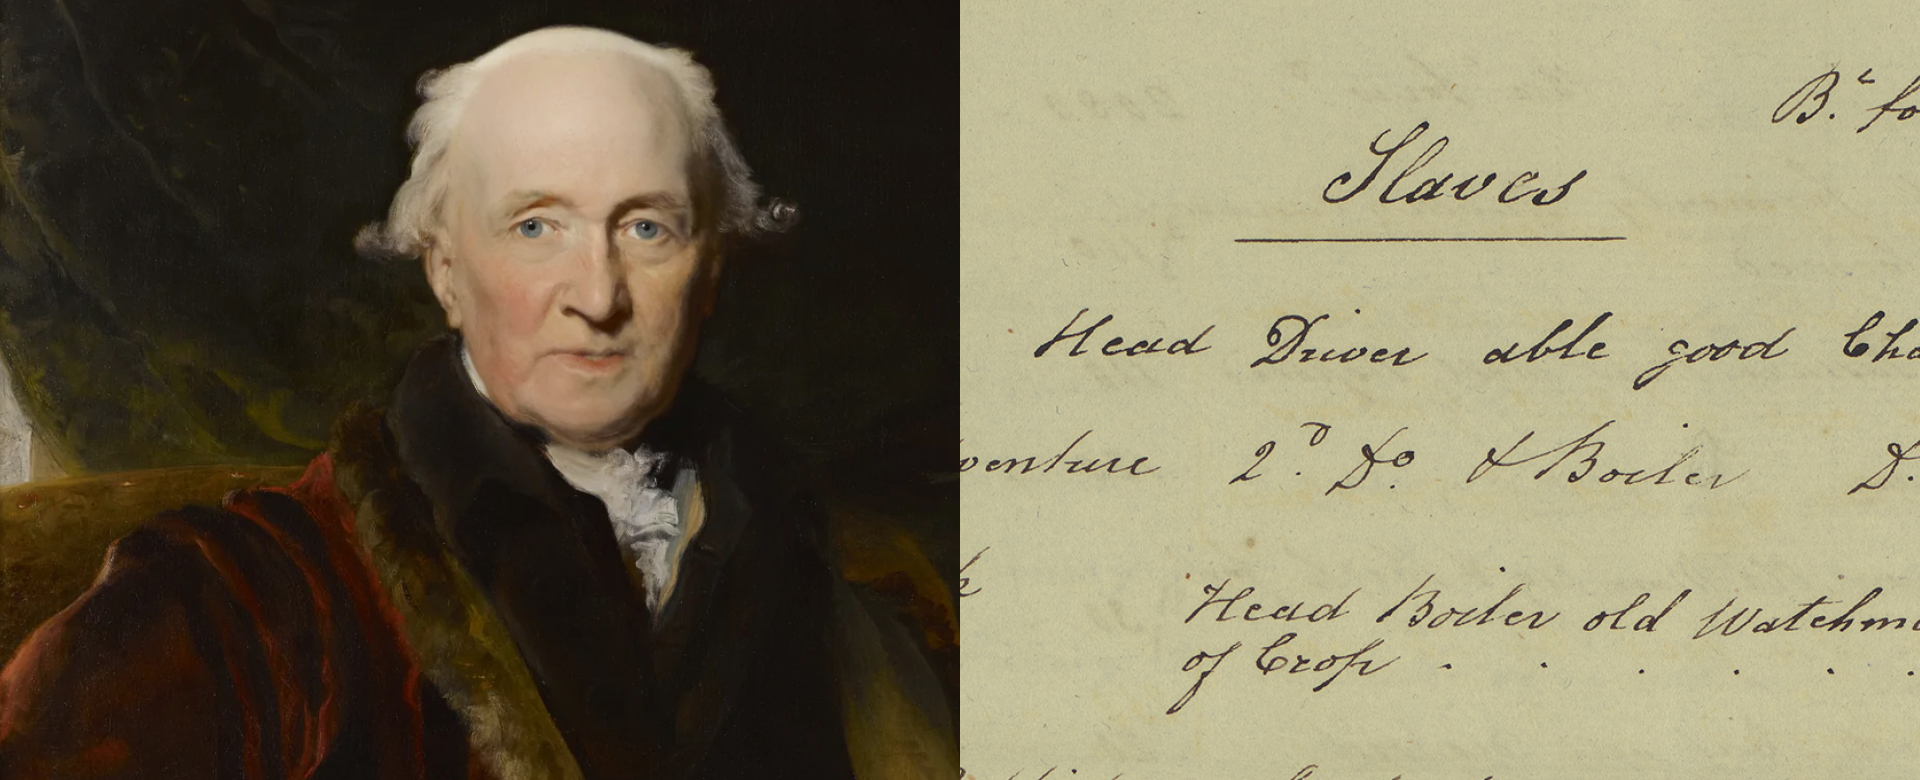 Br fo
Slaves
Head Driver able good Cha
venture 2D Do & Boiler D.
k
Head Boiler old Watchma
of Crop . . . . .